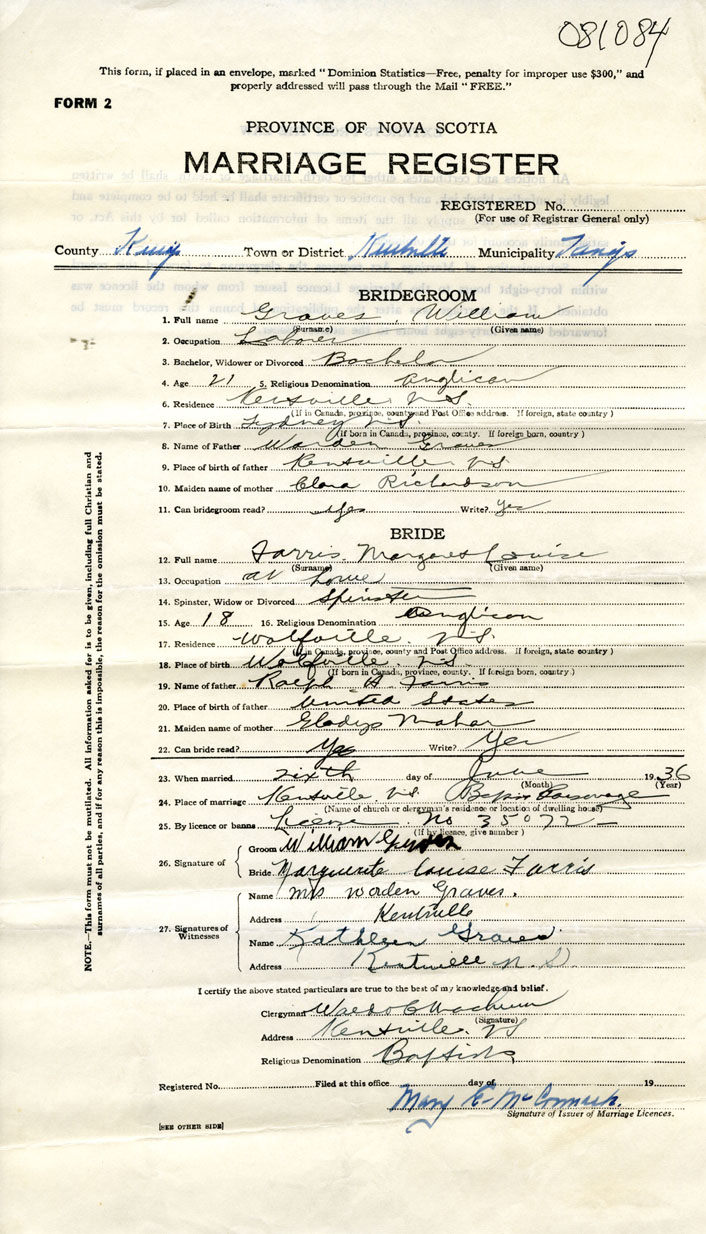 081084
This form, if placed in an envelope, marked "Dominion Statistics—Free, penalty for improper use $300," and
properly addressed will pass through the Mail "FREE."
FORM 2
PROVINCE OF NOVA SCOTIA
MARRIAGE REGISTER
REGISTERED No.
(For use of Registrar General only)
County Kings Town or District Kentville Municipality Kings
BRIDEGROOM
1. Full name Graves, William
(Surname) (Given name)
2. Occupation Laborer
3. Bachelor, Widower or Divorced Bachelor
4. Age 21 5. Religious Denomination Anglican
6. Residence Kentville N.S.
(If in Canada, province, county and Post Office address. If foreign, state country)
7. Place of Birth Sydney N.S.
(If born in Canada, province, county. If foreign born, country)
8. Name of Father Warden Graves
9. Place of birth of father Kentville N.S.
10. Maiden name of mother Clara Richardson
11. Can bridegroom read? Yes Write? Yes
BRIDE
12. Full name Farris, Margaret Louise
(Surname) (Given name)
13. Occupation at home
14. Spinster, Widow or Divorced Spinster
15. Age 18 16. Religious Denomination Anglican
17. Residence Wolfville. N.S.
(If in Canada, province, county and Post Office address. If foreign, state country)
18. Place of birth Wolfville. N.S.
(If born in Canada, province, county. If foreign born, country)
19. Name of father Ralph H Farris
20. Place of birth of father United States
21. Maiden name of mother Gladys Mahar
22. Can bride read? Yes Write? Yes
23. When married sixth day of June 1936
(Month) (Year)
24. Place of marriage Kentville N.S. Parsonage
(Name of church or clergyman's residence or location of dwelling house)
25. By licence or banns License No 35072
(If by licence, give number)
26. Signature of
Groom William Graves
Bride Marguerite Louise Farris
27. Signatures of Witnesses
Name Mrs Worden Graves.
Address Kentville
Name Kathleen Graves.
Address Kentville N.S
I certify the above stated particulars are true to the best of my knowledge and belief.
Clergyman
(Signature)
Address Kentville. NS
Religious Denomination Baptist
Registered No. Filed at this office day of 19
Mary E. McCormack.
Signature of Issuer of Marriage Licences.
[SEE OTHER SIDE]
NOTE.—This form must not be mutilated. All information asked for is to be given, including full Christian and
surnames of all parties, and if for any reason this is impossible, the reason for the omission must be stated.